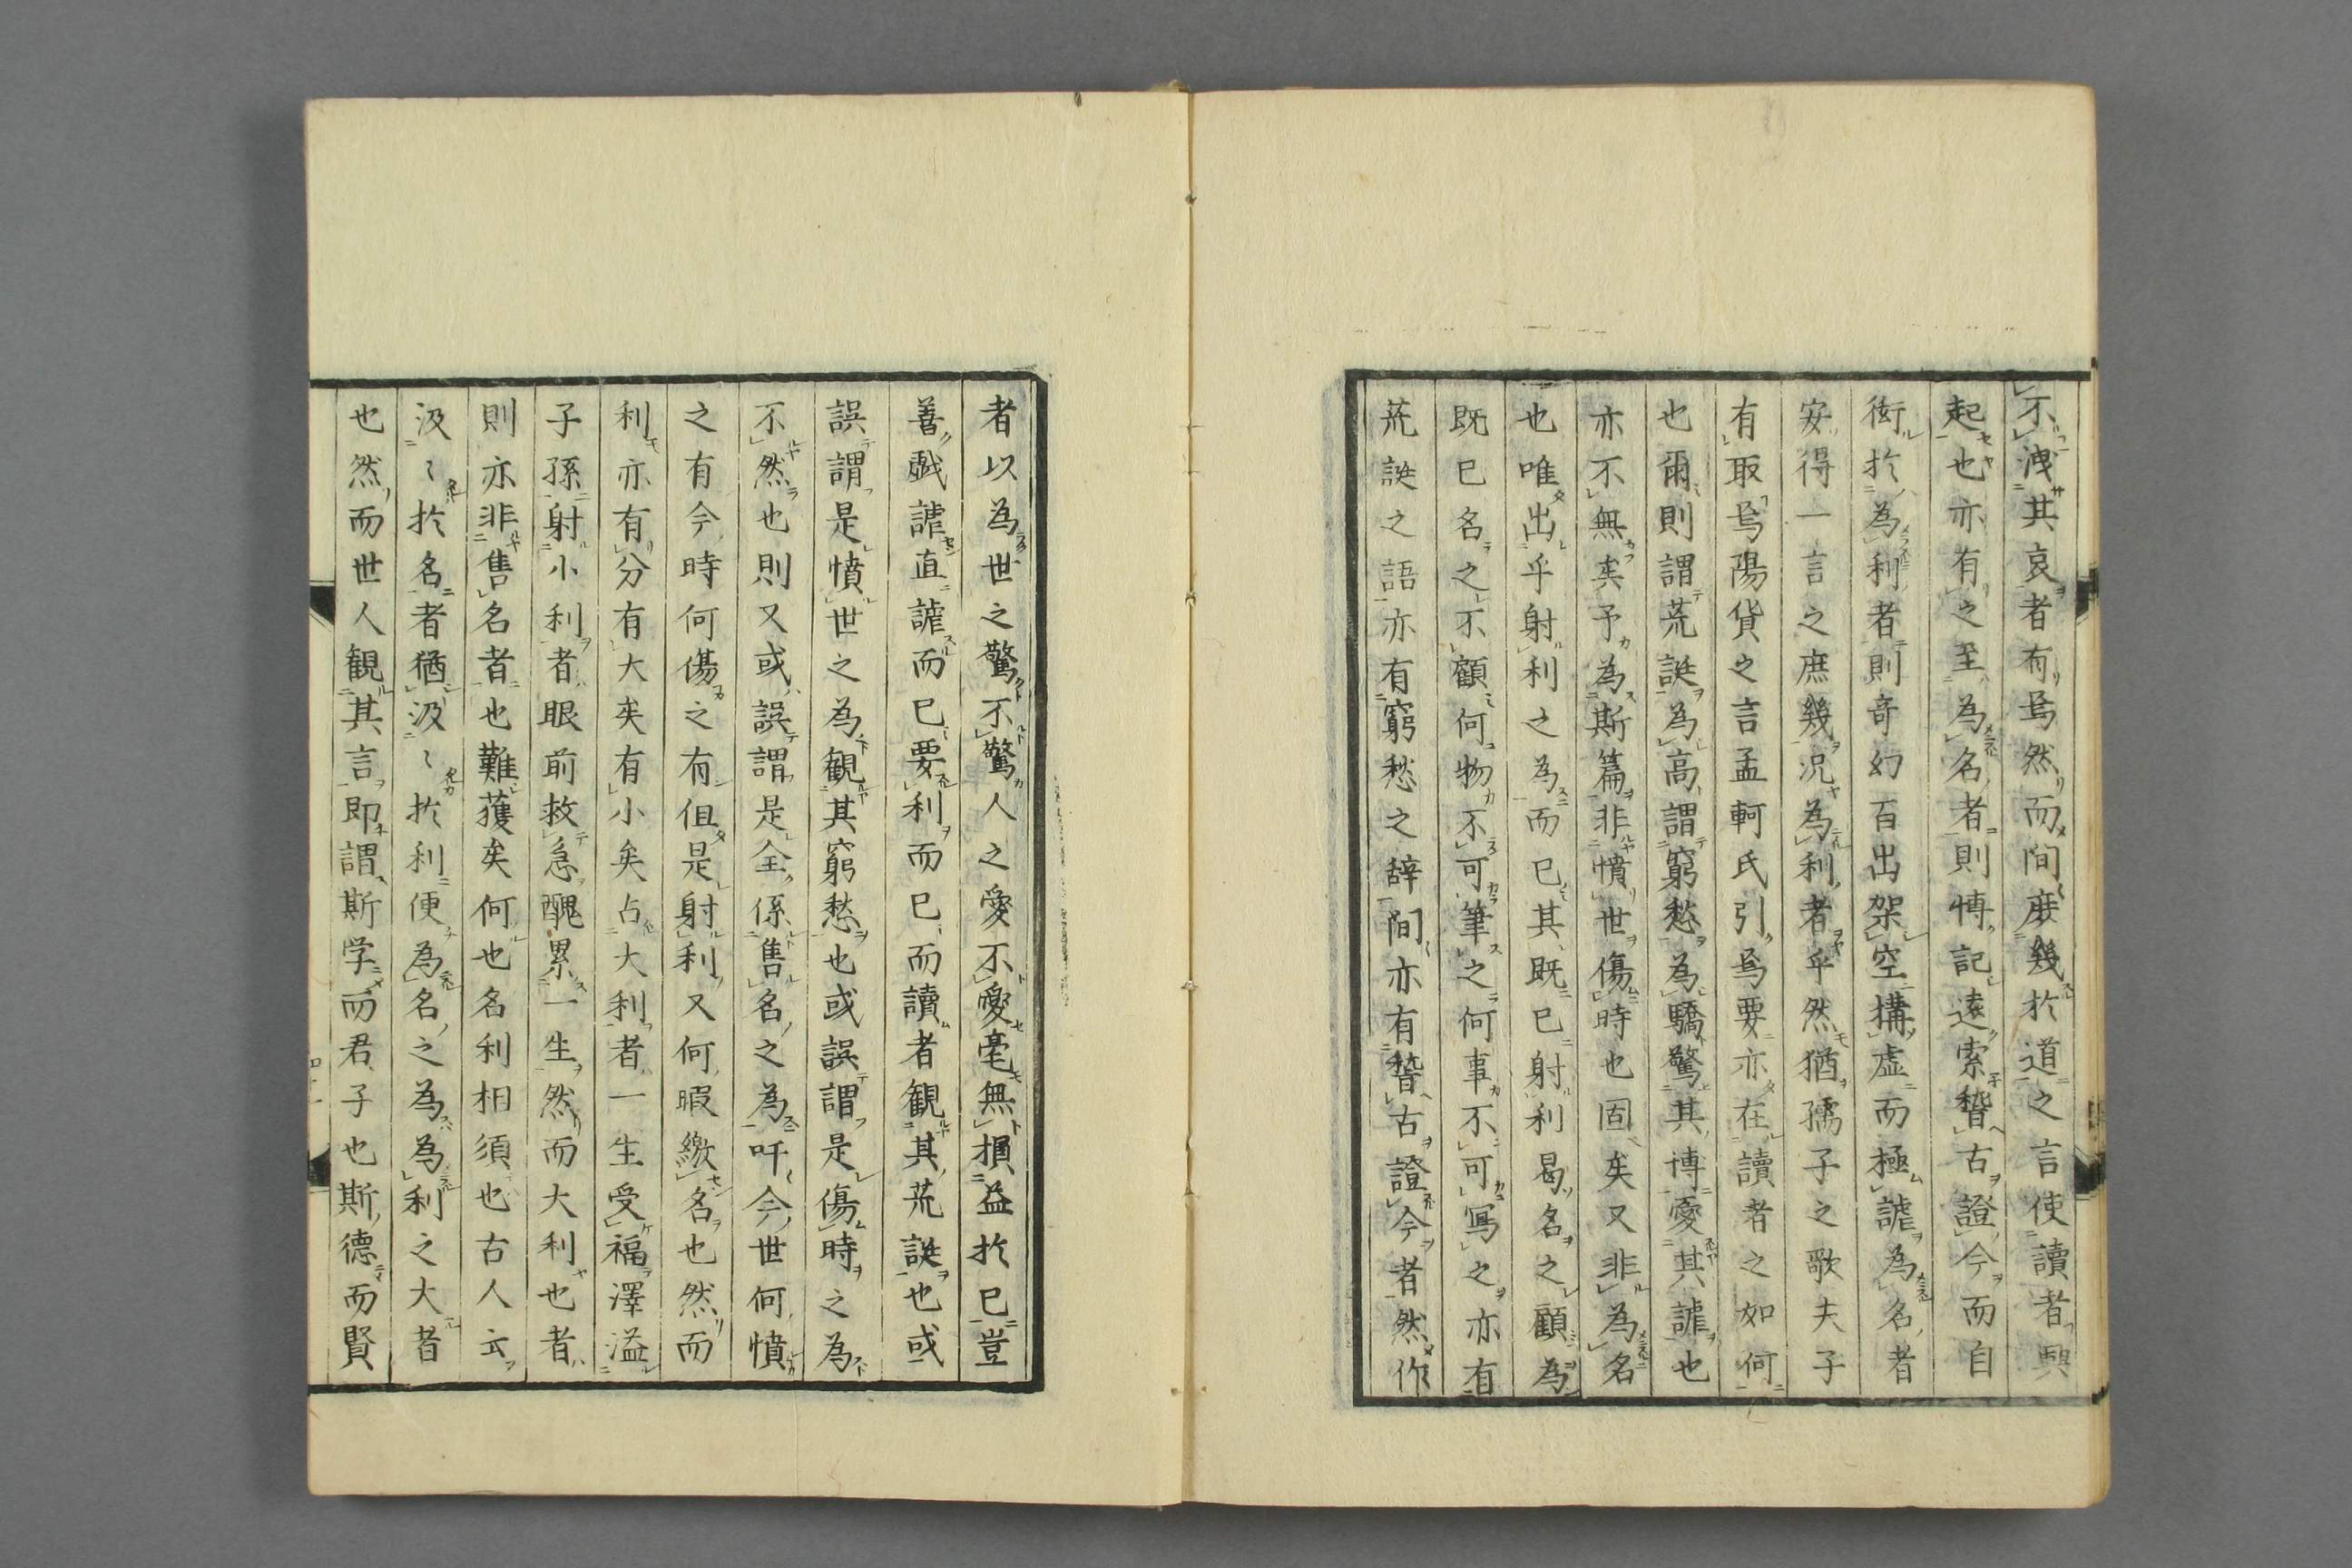 不洩其哀者有焉然而間庶幾於道之言使讀者興
起也亦有之至為名者則博記遠索稽古證今而自
衒於為利者則奇幻百出架空構虛而極謔為名者
安得一言之庶幾況為利者乎然猶孺子之歌夫子
有取焉陽貨之言孟軻氏引焉要亦在讀者之如何
也爾則謂荒誕為高謂窮愁為驕驚其博愛其謔也
亦不無矣予為斯篇非憤世傷時也固矣又非為名
也唯出乎射利之為而已其既已射利曷名之顧為
既已名之不顧何物不可筆之何事不可写之亦有
荒誕之語亦有窮愁之辞間亦有稽古證今者然作
者以為世之驚不驚人之愛不愛毫無損益於已豈
善戯謔直謔而已要利而已而讀者観其荒誕也或
誤謂是憤世之為観其窮愁也或誤謂是傷時之為
不然也則又或誤謂是全係售名之為吁今世何憤
之有今時何傷之有但是射利又何暇繳名也然而
利亦有分有大矣有小矣占大利者一生受福澤溢
子孫射小利者眼前救急醜累一生然而大利也者
則亦非售名者也難獲矣何也名利相須也古人云
汲〻於名者猶汲〻於利便為名之為為利之大者
也然而世人観其言即謂斯学而君子也斯德而賢